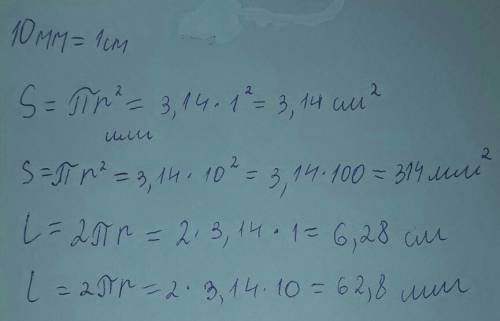 10мм = 1см
S = πr² = 3,14 · 1² = 3,14 см²
или
S = πr² = 3,14 · 10² = 3,14 · 100 = 314 мм²
L = 2πr = 2 · 3,14 · 1 = 6,28 см
L = 2πr = 2 · 3,14 · 10 = 62,8 мм